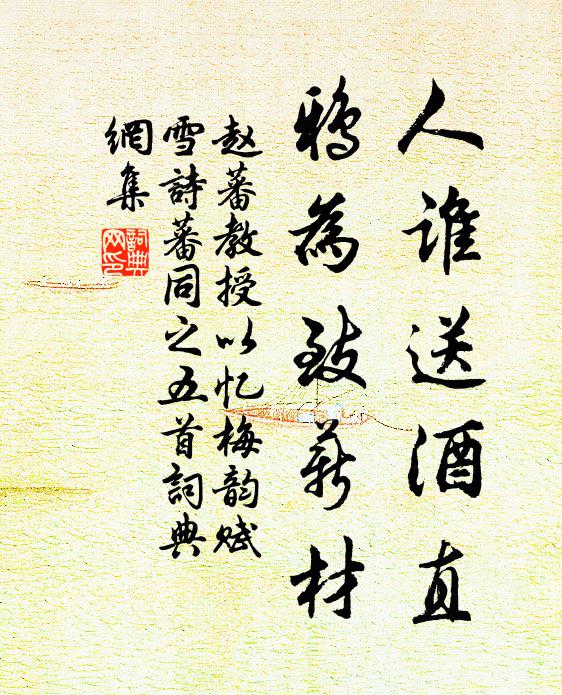 人谁送酒直
鸦為致薪材
赵蕃教授以忆梅韵赋
雪詩蕃同之五首詞典
網集
詞典
网印